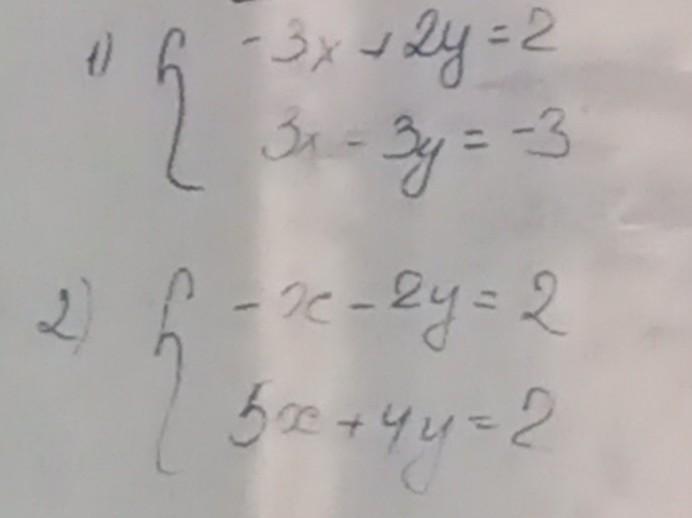 1) { -3x + 2y = 2
3x - 3y = -3
2) { -x - 2y = 2
5x + 4y = 2